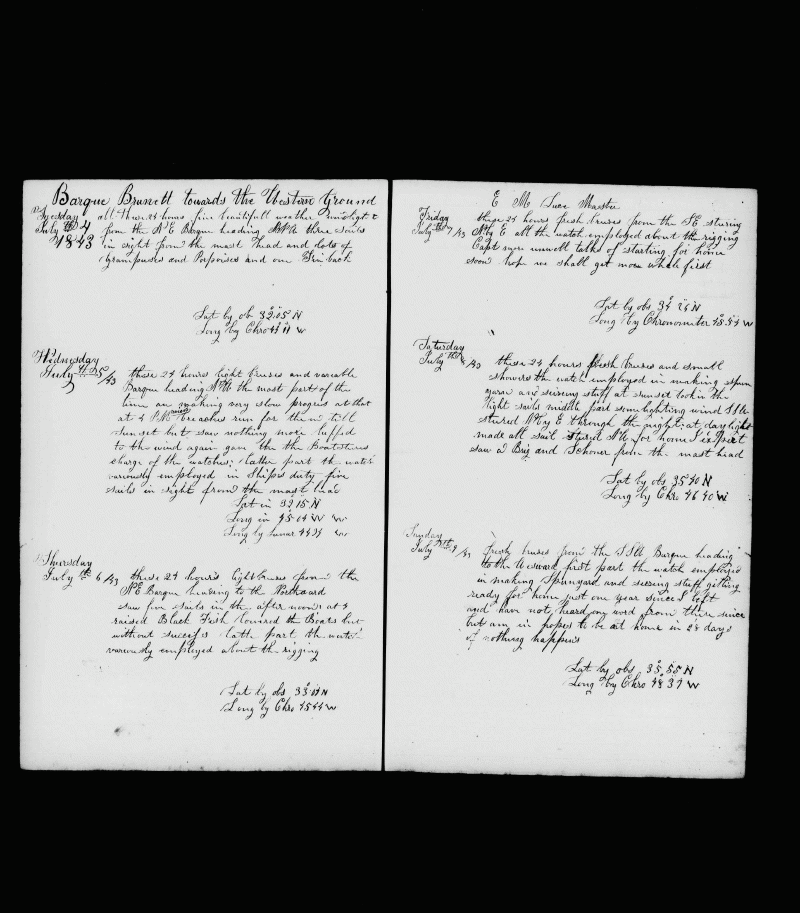 Barque Brunett towards the Western Ground
Tuesday all these 24 hours fine beautifull weather
July th 4 from the N E Barque heading three sails
1843 in sight from the mast head and lots of
Grampuses and Porpoises and one Finback
Lat by ob 32.05 N
Long by Chro W
Wednesday
July th 5/43 these 24 hours light breses and variable
Barque heading the most part of the
time an making very slow progres at that
at 4 P.M. breaches run for them till
sunset but saw nothing more luffed
to the wind again gave the the Boatsteres
charge of the watches; latter part the watch
variously employed in Ships duty five
sails in sight from the mast head
Lat in 32 15 N
Long in 45 04 W
Long by Lunar 44 W
Thursday
July th 6/43 these 24 hours light breses from the
N E Barque heading to the Northward
saw five sails in the after noon at 4
raised Black Fish lowered the Boats but
without success latter part the watch
variously employed about the rigging
Lat by obs 33 N
Long by Chro 45 44 W
E M Luce Master
Friday these 24 hours fresh breses from the S E stering
July th 7/43 N by E all the watch employed about the rigging
Capt unwell talks of starting for home
soon hope we shall get more whale first
Lat by obs 34 N
Long by Chronomiter 45 54 W
Saturday
July th 8/43 these 24 hours fresh breses and small
showers the watch employed in making spun
yarn and seising stuff at sunset took in the
light sails middle part wind S S W
stured N by E through the night; at daylight
made all sail stured for home I expect
saw a Brig and Schoner from the mast head
Lat by obs 35 40 N
Long by Chro 46 40 W
Sunday
July th 9/43 fresh breses from the S S W Barque heading
to the Westward first part the watch employed
in making Spunyard and seesing stuff getting
ready for home just one year since I left
and have not heard any word from there since
but am in hopes to be at home in 28 days
if nothing happens
Lat by obs 35 55 N
Long by Chro 48 37 W